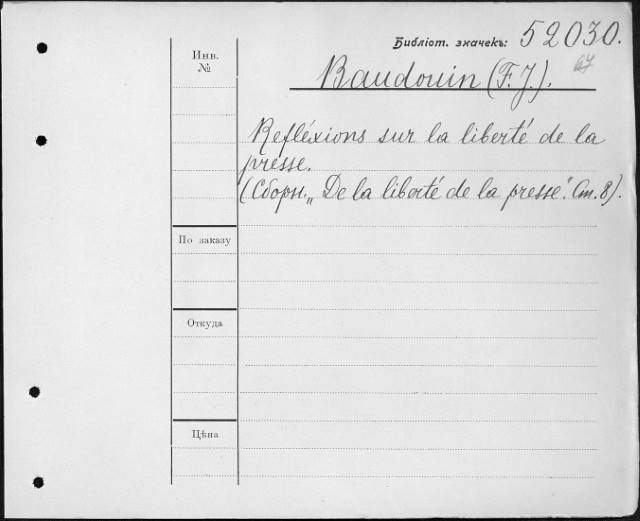 Библіот. значекъ: 52030.
Инв.
№
Baudouin (F. J.).
Refléxions sur la liberté de la
presse.
(Сборн. „De la liberté de la presse“. Ст. 8).
По заказу
Откуда
Цѣна